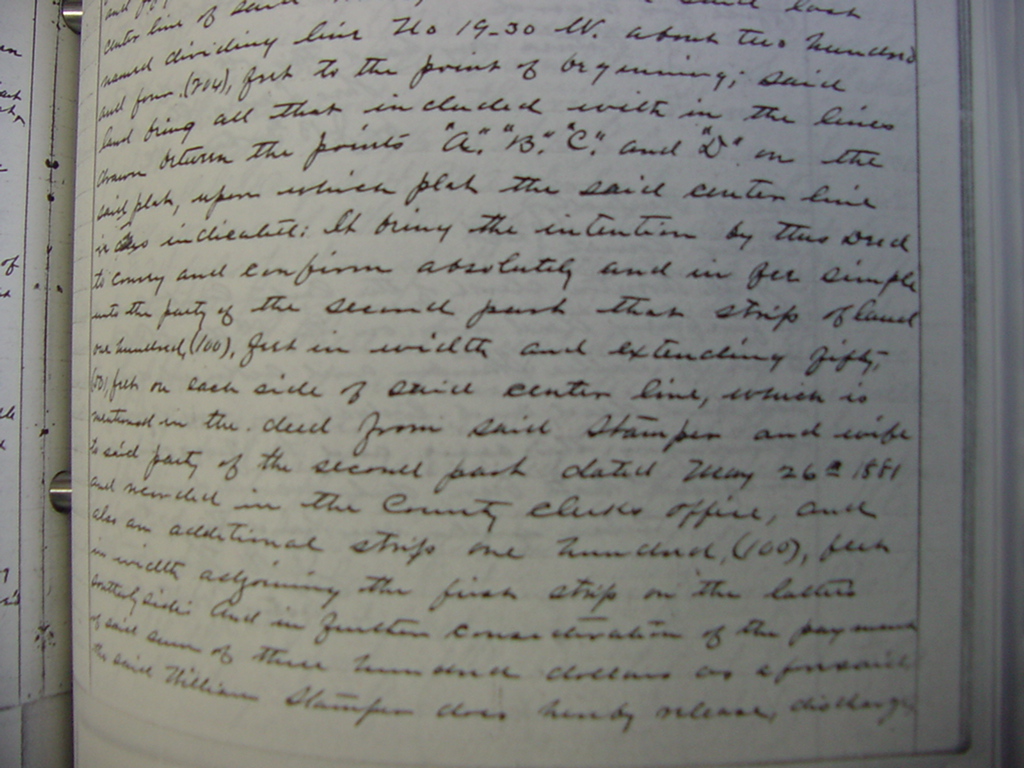 center line of said said last
named dividing line No 19-30 W. about two hundred
and four (204), feet to the point of beginning; said
land being all that included with in the lines
drawn between the points "A", "B", "C", and "D" on the
said plat, upon which plat the said center line
is also indicated: It being the intention by this Deed
to convey and confirm absolutely and in fee simple
unto the party of the second part that strip of land
one hundred, (100), feet in width and extending fifty,
(50), feet on each side of said center line, which is
mentioned in the deed from said Stamper and wife
to said party of the second part dated May 26th 1881
and recorded in the County clerks office, and
also an additional strip one hundred, (100), feet
in width adjoining the first strip on the latters
side: And in further consideration of the payment
of said sum of three hundred dollars as aforesaid
the said William Stamper does hereby release, discharge,